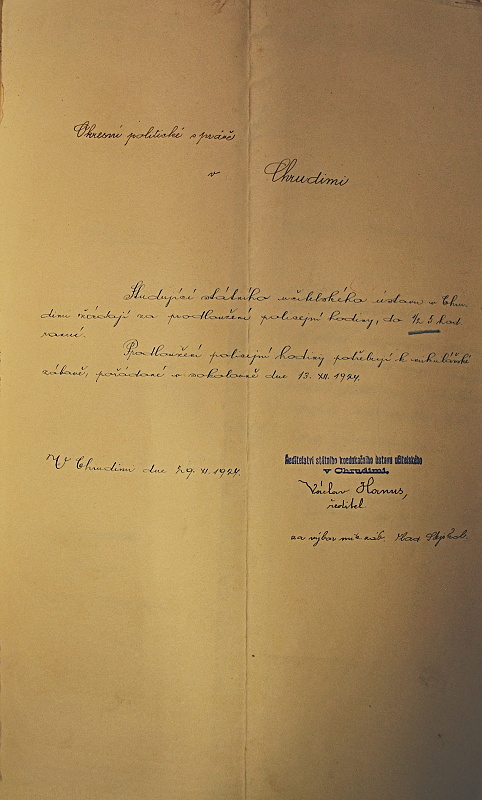 Okresní politické správě
v Chrudimi
Studující státního učitelského ústavu v Chru-
dimi žádají za prodloužení policejní hodiny, do 1/2 5 hod.
ranní.
Prodloužení policejní hodiny potřebují k mikulášské
zábavě, pořádané v sokolovně dne 13. XII. 1924.
V Chrudimi dne 29. XI. 1924.
Ředitelství státního koedukačního ústavu učitelského
v Chrudimi.
Václav Hanus,
ředitel
za výbor mik. záb.